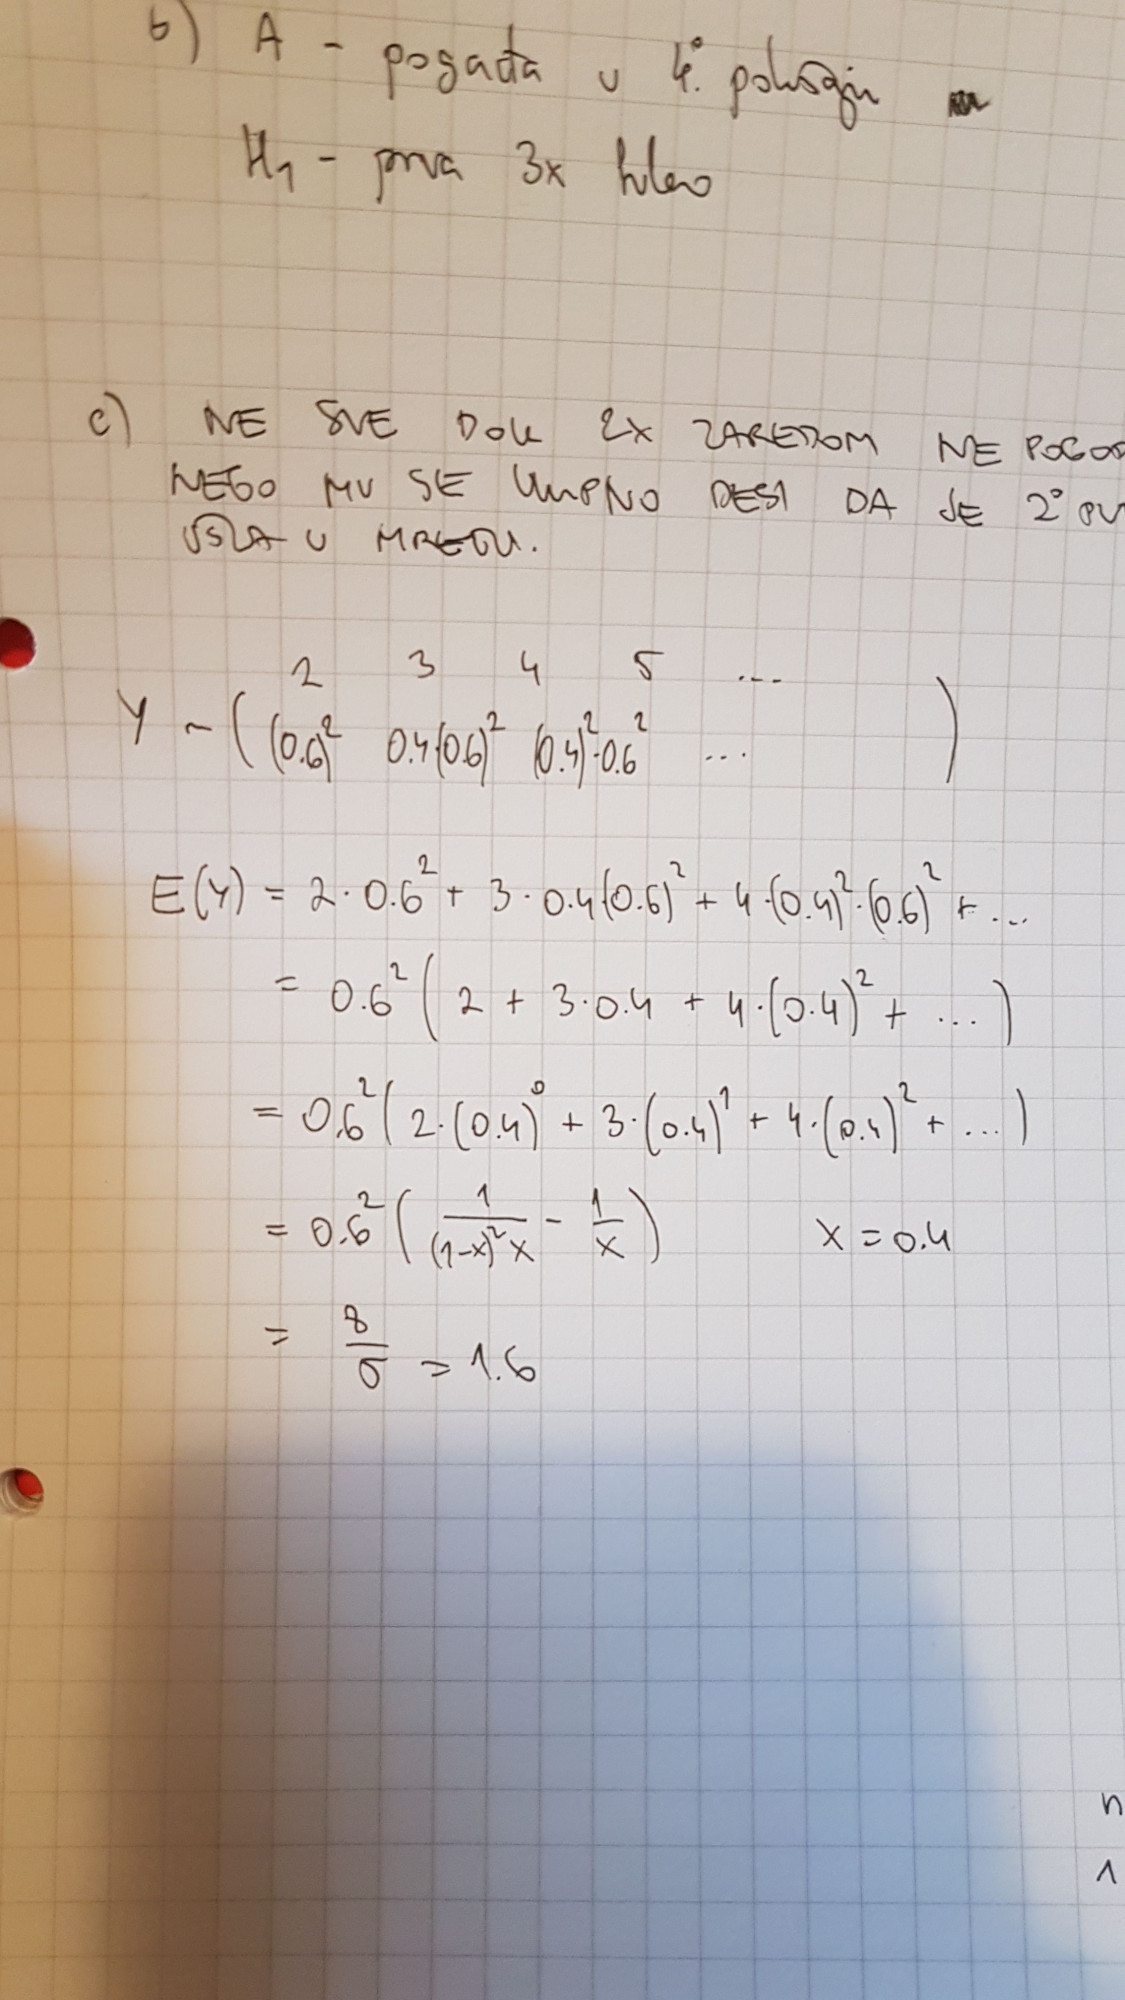 b) A - pogađa u 4° pokušaju
H₁ - prva 3x
c) NE SVE DOK 2X ZAREDOM NE POGOD
NEGO MU SE UKUPNO DESI DA JE 2° PU
UŠLA U MREŽU.
2 3 4 5 ...
Y ~ ( (0.6)² 0.4(0.6)² (0.4)²·0.6² ... )
E(Y) = 2·0.6² + 3·0.4(0.6)² + 4·(0.4)²·(0.6)² + ...
= 0.6² ( 2 + 3·0.4 + 4·(0.4)² + ... )
= 0.6² ( 2·(0.4)⁰ + 3·(0.4)¹ + 4·(0.4)² + ... )
= 0.6² ( 1/((1-x)²x) - 1/x ) x = 0.4
= 8/5 = 1.6
n
1